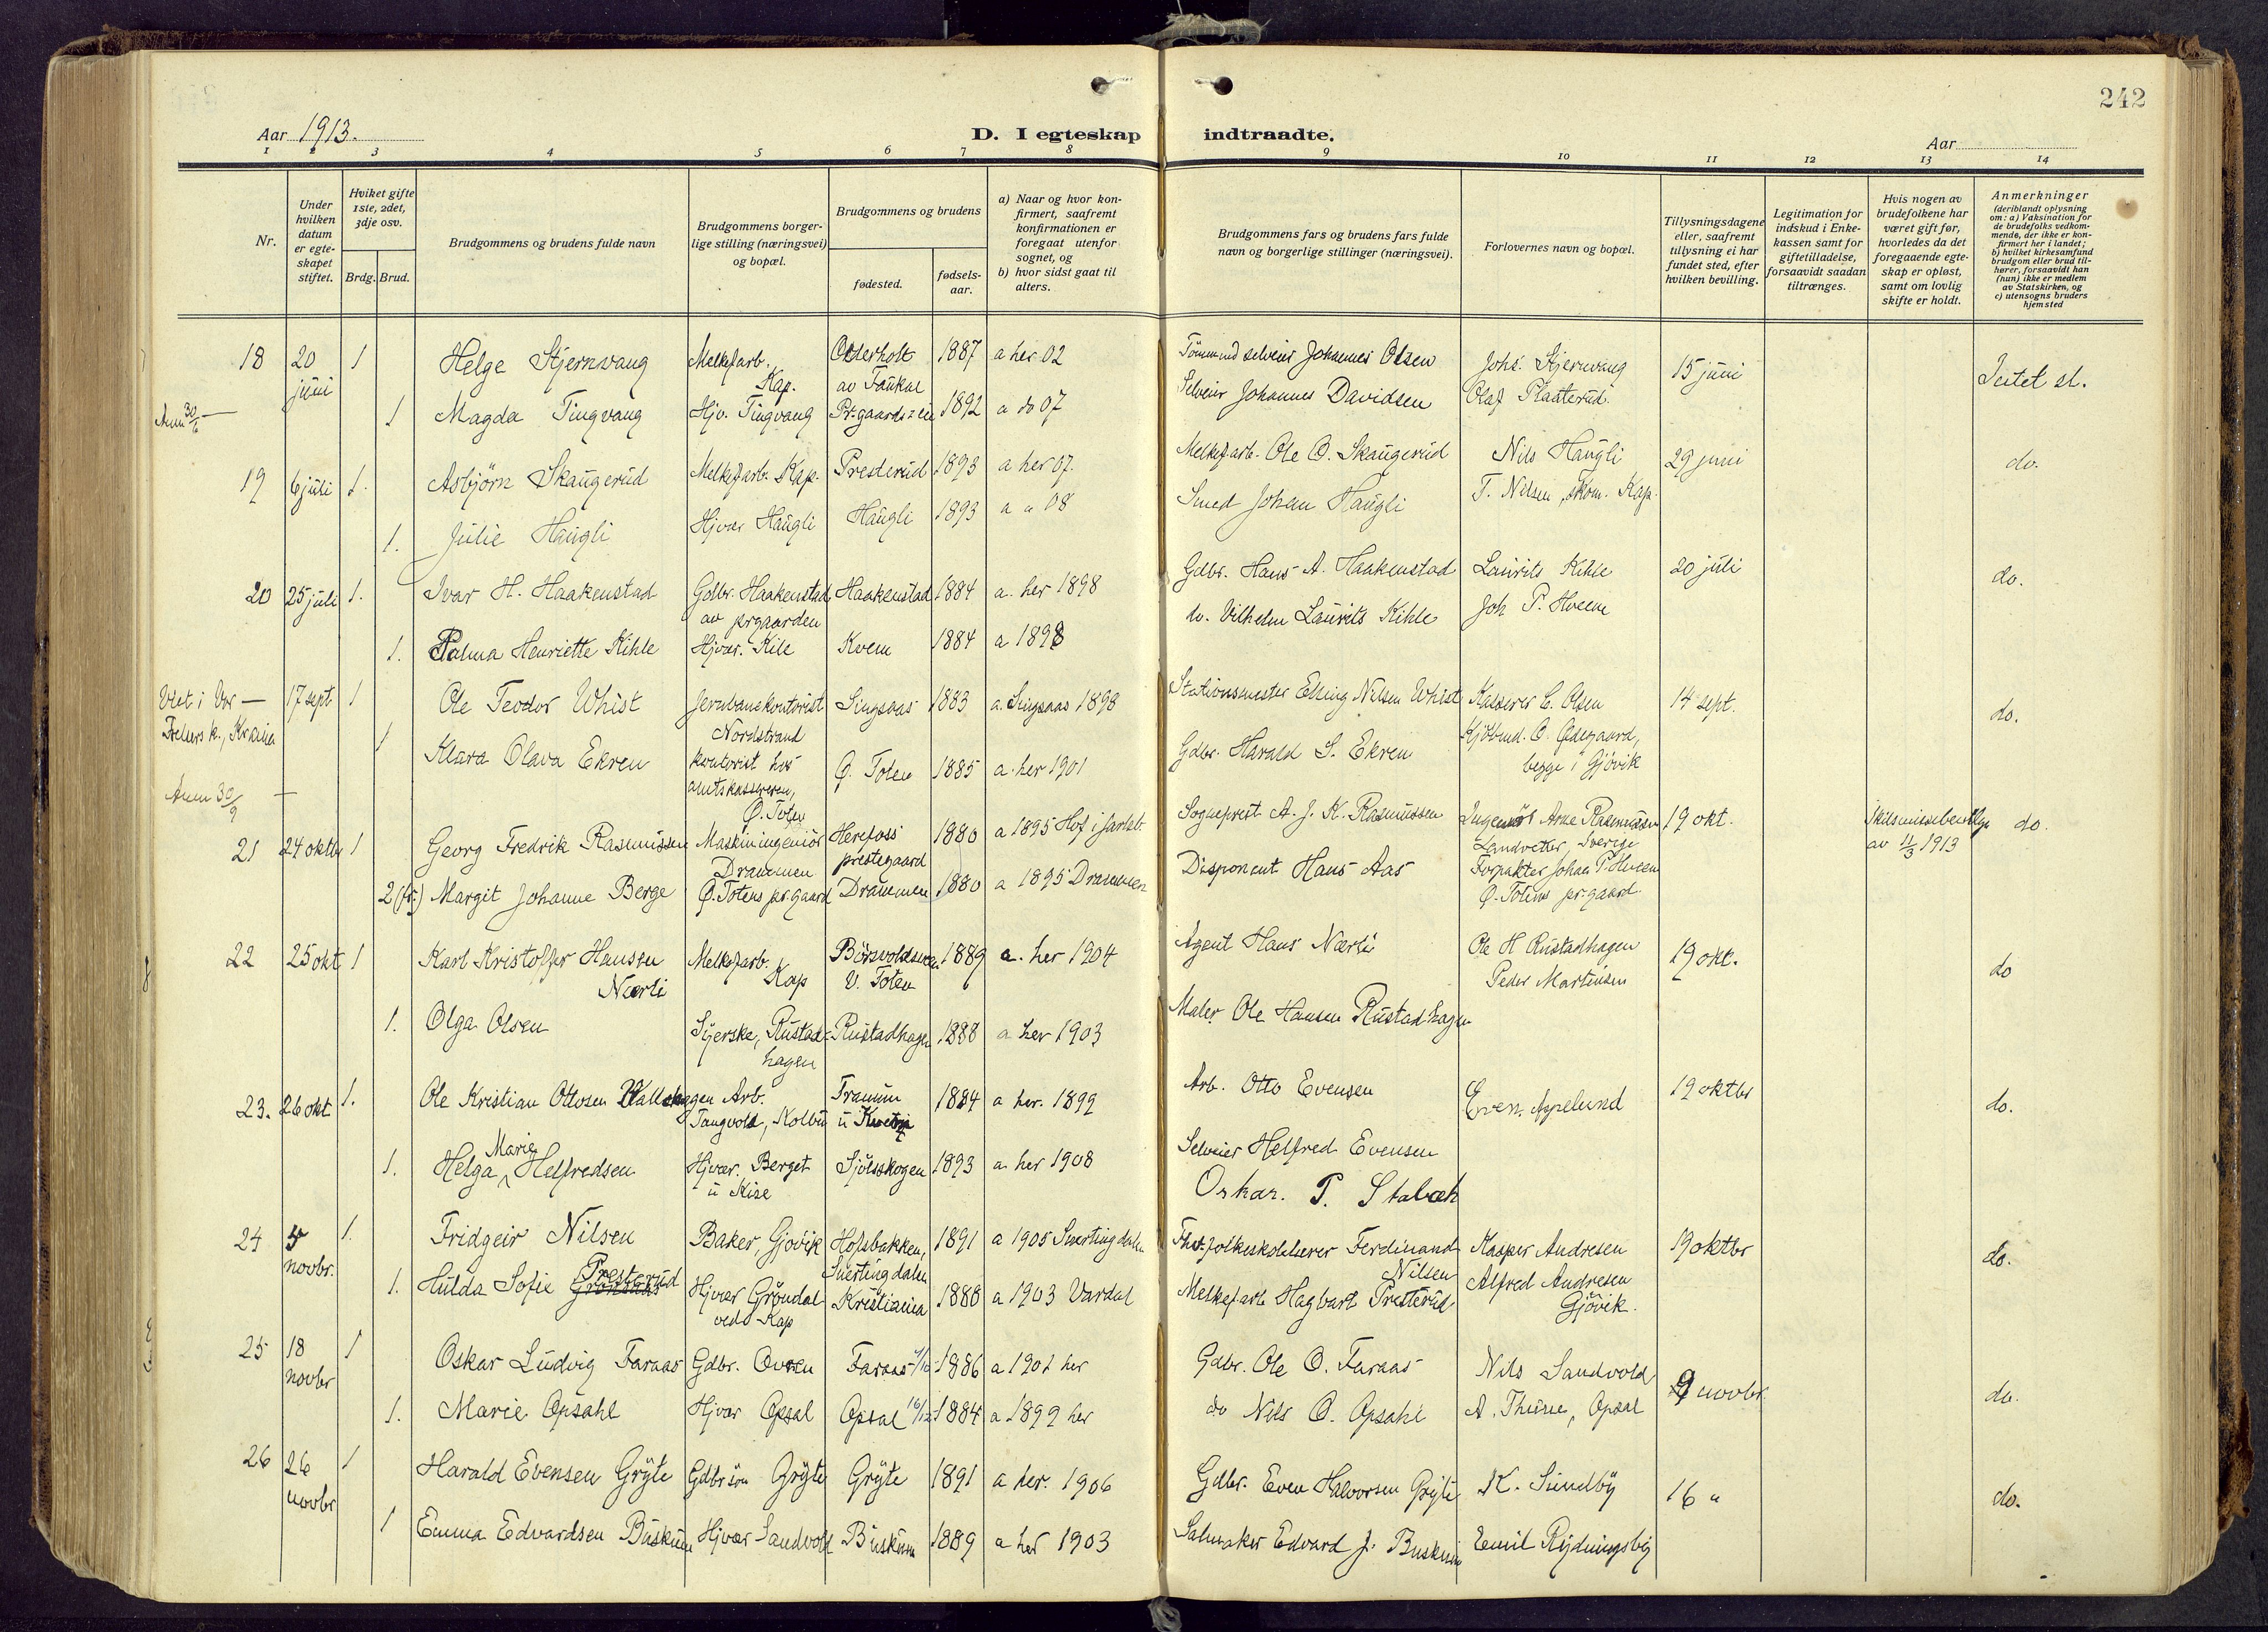 242
Aar 1913.
D. I egteskap indtraadte.
Aar
1 2 3 4 5 6 7 8 9 10 11 12 13 14
Nr.
Under hvilken datum er egteskapet stiftet.
Hvilket gifte 1ste, 2det, 3dje osv.
Brdg. Brud.
Brudgommens og brudens fulde navn
Brudgommens borgerlige stilling (næringsvei) og bopæl.
Brudgommens og brudens
fødested.
fødselsaar.
a) Naar og hvor konfirmert, saafremt konfirmationen er foregaat utenfor sognet, og
b) hvor sidst gaat til alters.
Brudgommens fars og brudens fars fulde navn og borgerlige stillinger (næringsvei).
Forlovernes navn og bopæl.
Tillysningsdagene eller, saafremt tillysning ei har fundet sted, efter hvilken bevilling.
Legitimation for indskud i Enkekassen samt for giftetilladelse, forsaavidt saadan tiltrænges.
Hvis nogen av brudefolkene har været gift før, hvorledes da det foregaaende egteskap er opløst, samt om lovlig skifte er holdt.
Anmerkninger
(deriblandt oplysning om: a) Vaksination for de brudefolks vedkommende, der ikke er konfirmert her i landet;
b) hvilket kirkesamfund brudgom eller brud tilhører, forsaavidt han (hun) ikke er medlem av Statskirken, og
c) utensogns bruders hjemsted
18 20 juni 1 Helge Stjernvang Melkefarb. Kap. Olterholt av Faukal 1887 a her 02 Tømmermd selveier Johannes Olsen Johs. Stjernvang 15 juni
1 Magda Tingvang Hjv. Tingvang Pr.gaards 1892 a do 07 Selveier Johannes Davidsen Olaf Plaaterud
Anm 30/6 —
19 6 juli 1. Asbjörn Skaugerud Melkefarb. Kap. Presterud 1893 a her 07. Melkefarb. Ole O. Skaugerud Nils Haugli 29 juni do.
1. Julie Haugli Hjvær Haugli Haugli 1893 a " 08 Smed Johan Haugli T. Nilsen, skom. Kap.
20 25 juli 1. Ivar H. Haakenstad Gdbr. Haakenstad av prgaarden Haakenstad 1884 a. her 1898 Gdbr. Hans A. Haakenstad Laurits Kihle 20 juli do.
1. Palma Henriette Kihle Hjvær. Kile Kvem 1884 a 1898 do. Vilhelm Laurits Kihle Joh P. Hveem
Viet i Vor — Frelsers k., Kr.ania 17 sept 1 Ole Teodor Whist Jernbanekontorist Nordstrand Singsaas 1883 a. Singsaas 1898 Stationsmester Elling Nilsen Whist Kasserer C. Olsen 14 sept. do.
1 Klara Olava Ekren kontorist hos amtskassereren, Ø. Toten Ø. Toten 1885 a. her 1901 Gdbr. Harald S. Ekren Kjöbmd. O. Ødegaard, begge i Gjövik
Anm 30/9 —
21 24 oktbr 1 Georg Fredrik Rasmussen Maskiningeniör Drammen Herefoss prestegaard 1880 a 1895 Hof i Jarlsb. Sogneprest A. J. K. Rasmussen Ingeniör Arne Rasmussen Landvetter, Sverige 19 okt. av 11/3 1913 do.
2 (fr.) Margit Johanne Berge Ø. Totens pr.gaard Drammen 1880 a 1895 Drammen Disponent Hans Aas Forpakter Johan P. Hveem Ø. Totens pr.gaard.
22 25 okt 1 Karl Kristoffer Hansen Nærli Melkefarb. Kap V. Toten 1889 a. her 1904 Agent Hans Nærli Ole H Rustadhagen Peder Martinsen 19 okt. do
1. Olga Olsen Syerske, Rustadhagen Rustadhagen 1888 a her 1903 Maler Ole Hansen Rustadhagen
23. 26 okt 1. Ole Kristian Ottosen Arb. Tangvold, Kolbu 1884 a her. 1899 Arb. Otto Evensen Even Appelund 19 oktbr do.
1. Helga Marie Helfredsen Hjvær. Berget u Kise Sjölsskogen 1893 a her 1908 Selveier Helfred Evensen
Oskar. P. Stabæk
24 5 novbr. 1. Fridgeir Nilsen Baker, Gjövik Hofsbakken, Snertingdalen 1891 a 1905 Snertingdalen folkeskolelærer Ferdinand Nilsen Kasper Andresen 19 oktbr do.
1. Hulda Sofie Presterud Hjvær Gröndal ved Kap Kristiania 1888 a 1903 Vardal Melkefarb Hagbart Presterud Alfred Andresen Gjövik.
25 18 novbr 1 Oskar Ludvig Faraas Gdbr. Ovren Faraas 1886 a 1901 her Gdbr. Ole O. Faraas Nils Sandvold 9 novbr. do.
1. Marie Opsahl Hjvær Opsal Opsal 16/12 1884 a 1899 her do Nils O. Opsahl A. Thune, Opsal
26 26 novbr 1 Harald Evensen Gryte Gdbrsön Gryte Gryte 1891 a her. 1906 Gdbr. Even Halvorsen Gryte K. Sundby 16 " do.
1 Emma Edvardsen Buskum Hjvær Sandvold Buskum 1889 a her 1903 Salmaker Edvard J. Buskum Emil Rydningsby